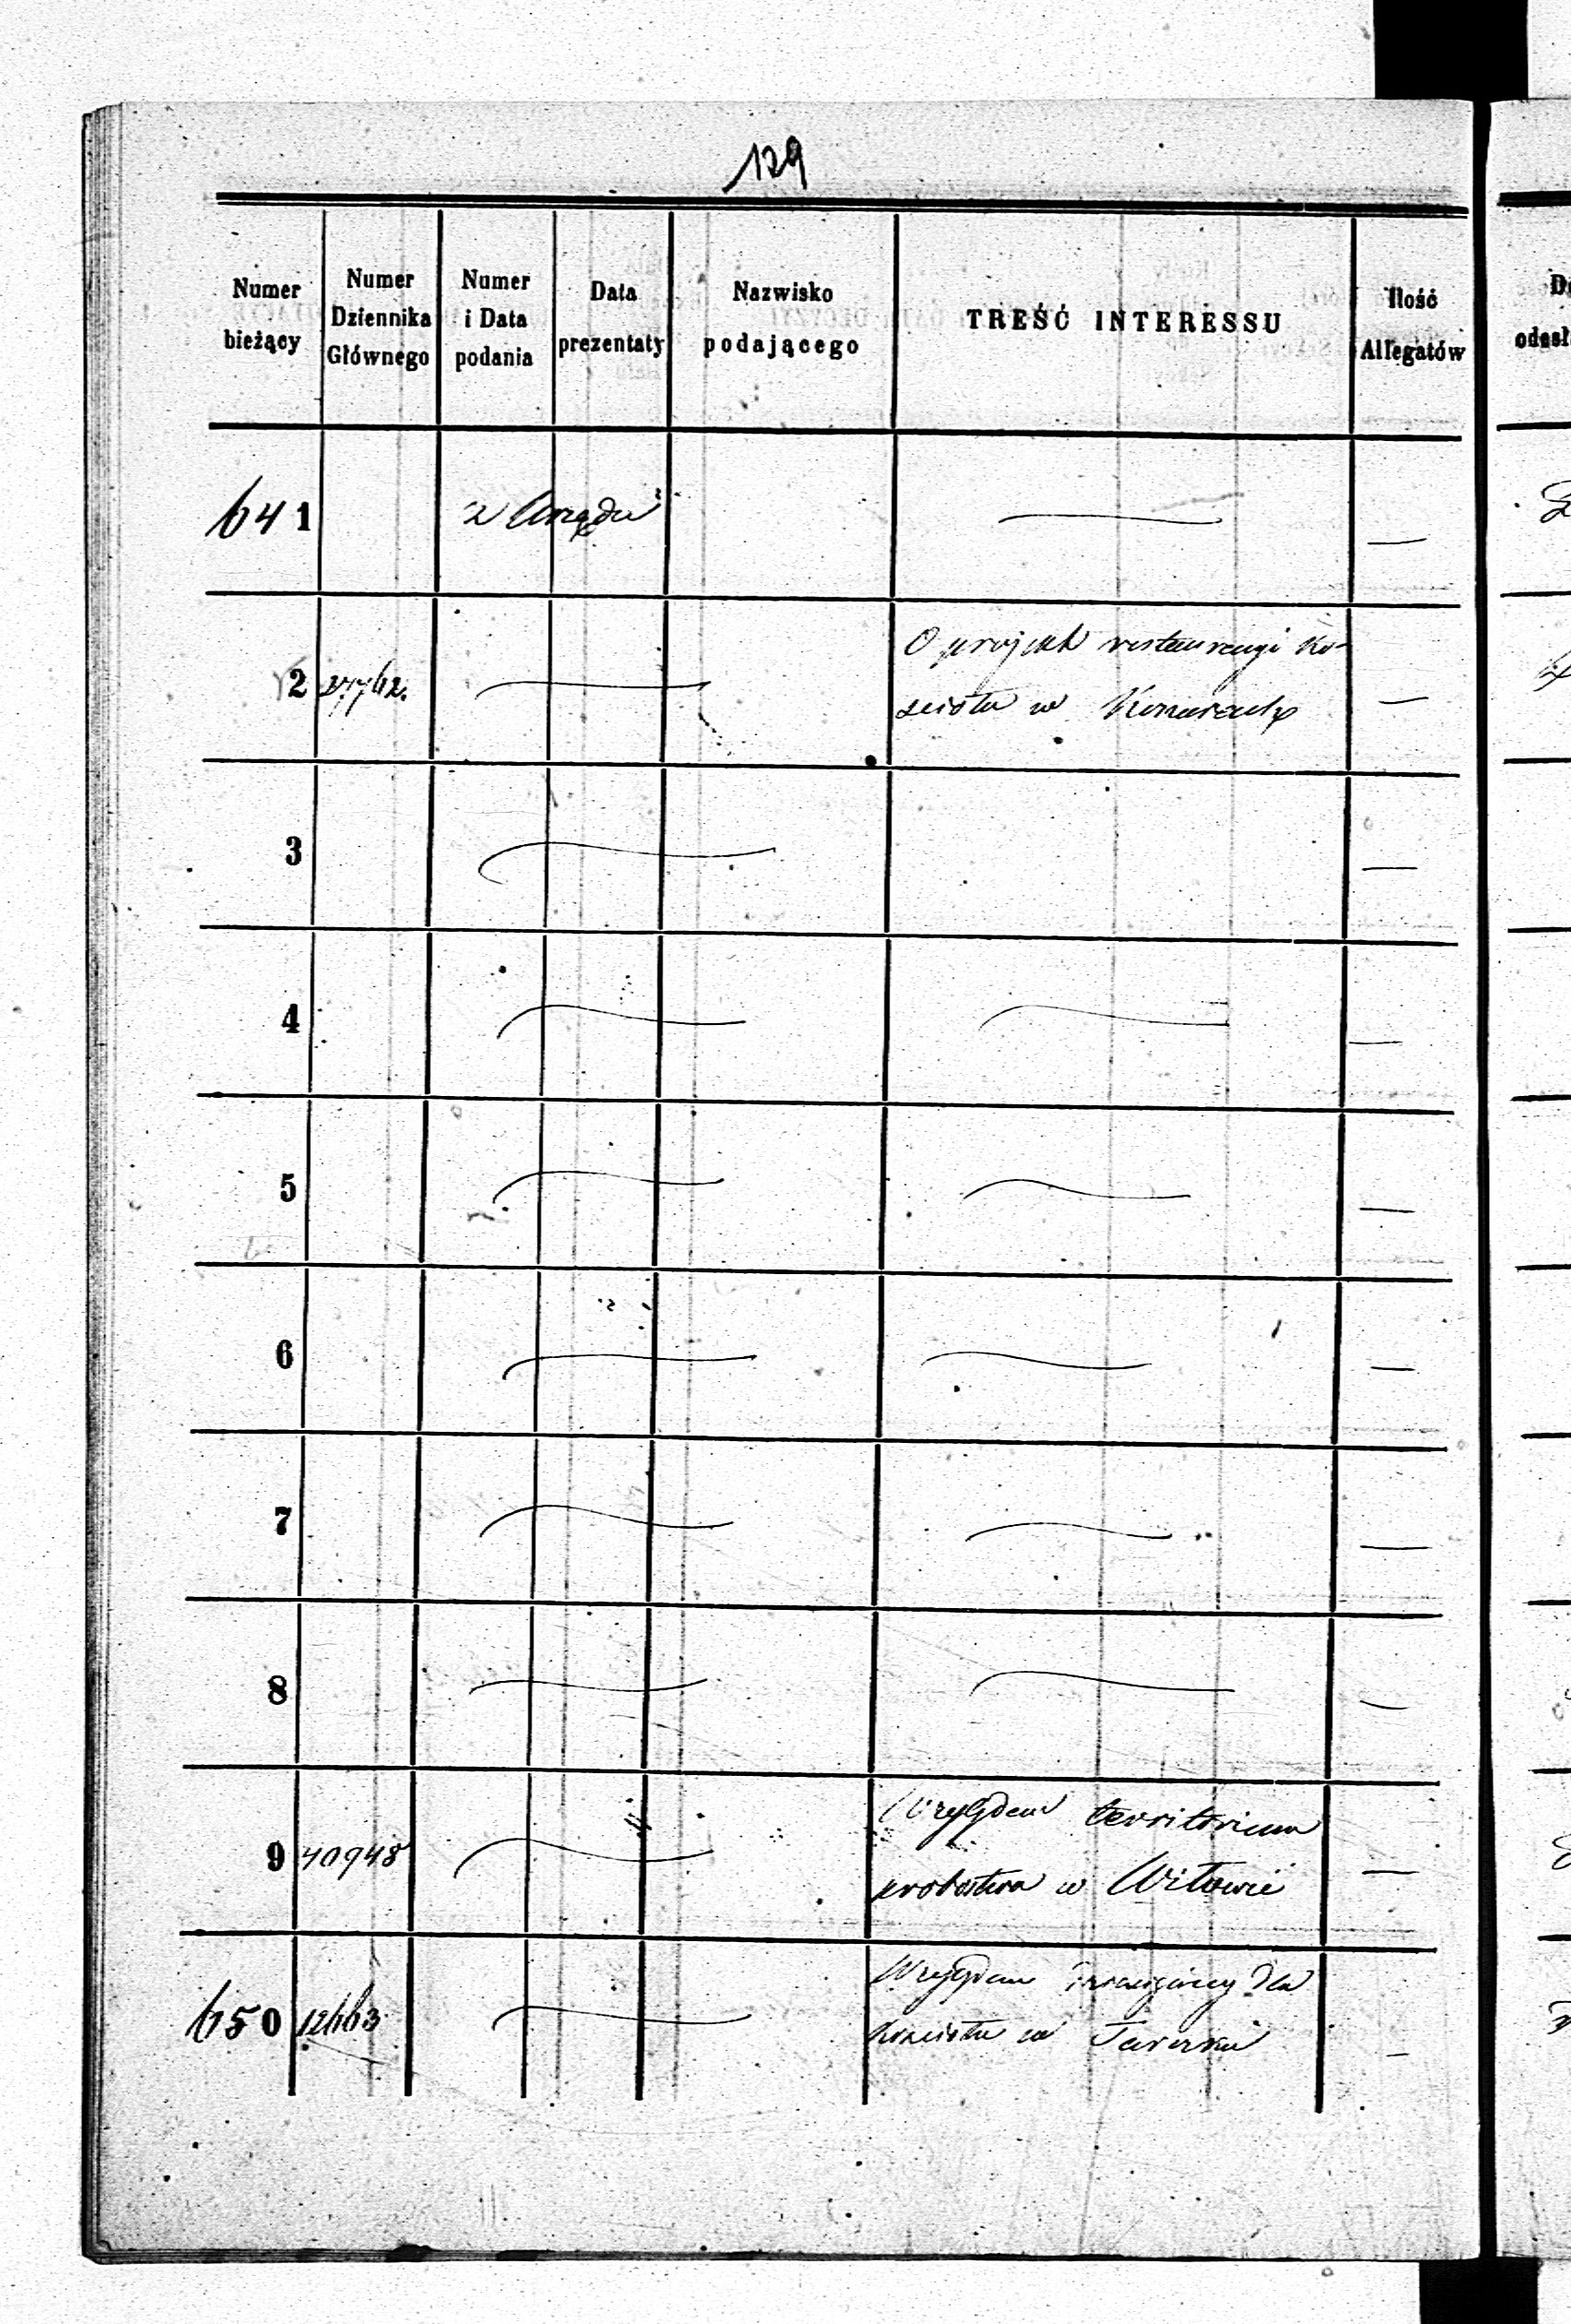 129
Numer bieżący
Numer Dziennika Głównego
Numer i Data podania
Data prezentaty
Nazwisko podającego
TREŚĆ INTERESSU
Ilość Allegatów
641 z Urzędu
2 27762. O projekt restauracyi Ko-
ścioła w
3
4
5
6
7
8
9 40948 Względem territorium
probostwa w Witowie
650 12663 Względem dla
kościoła w